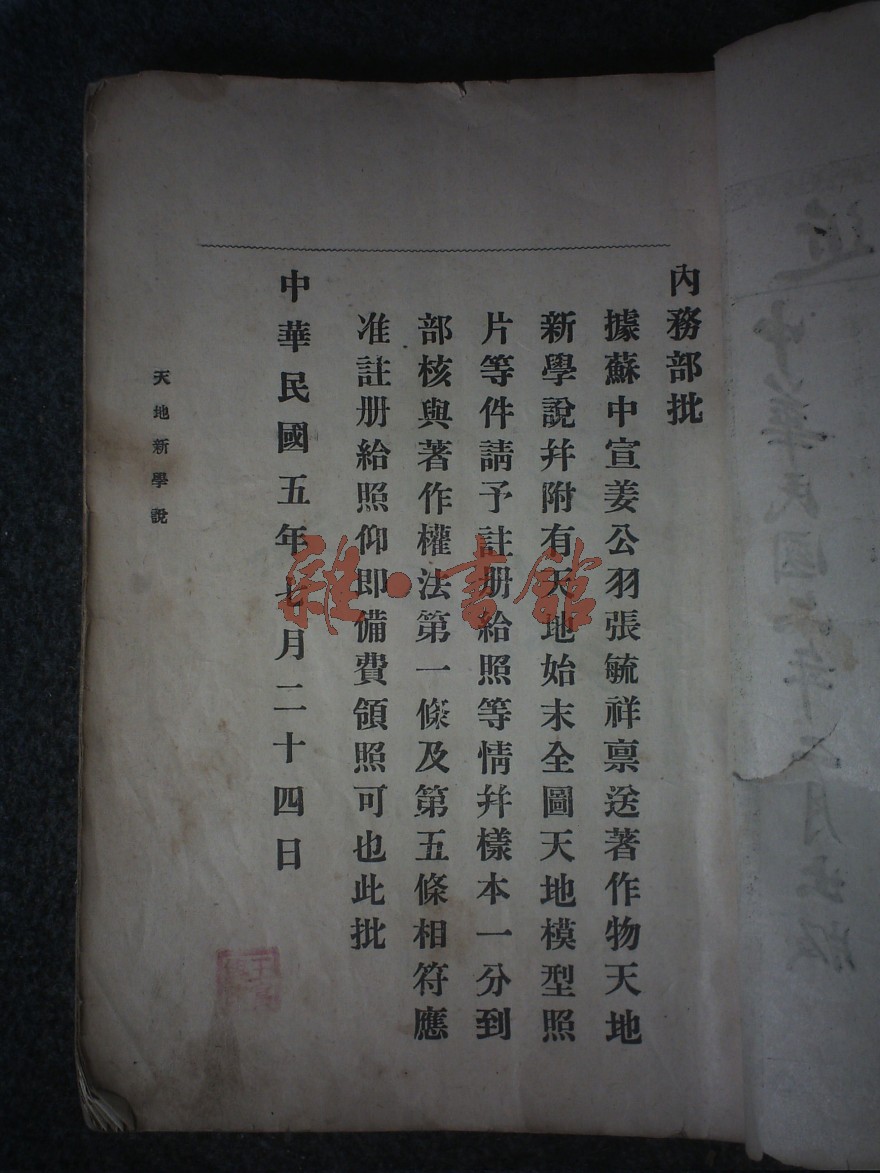 內務部批
據蘇中宣姜公羽張毓祥禀送著作物天地
新學說幷附有天地始末全圖天地模型照
片等件請予註册給照等情幷樣本一分到
部核與著作權法第一條及第五條相符應
准註册給照仰即備費領照可也此批
中華民國五年七月二十四日
天地新學說
雜·書館